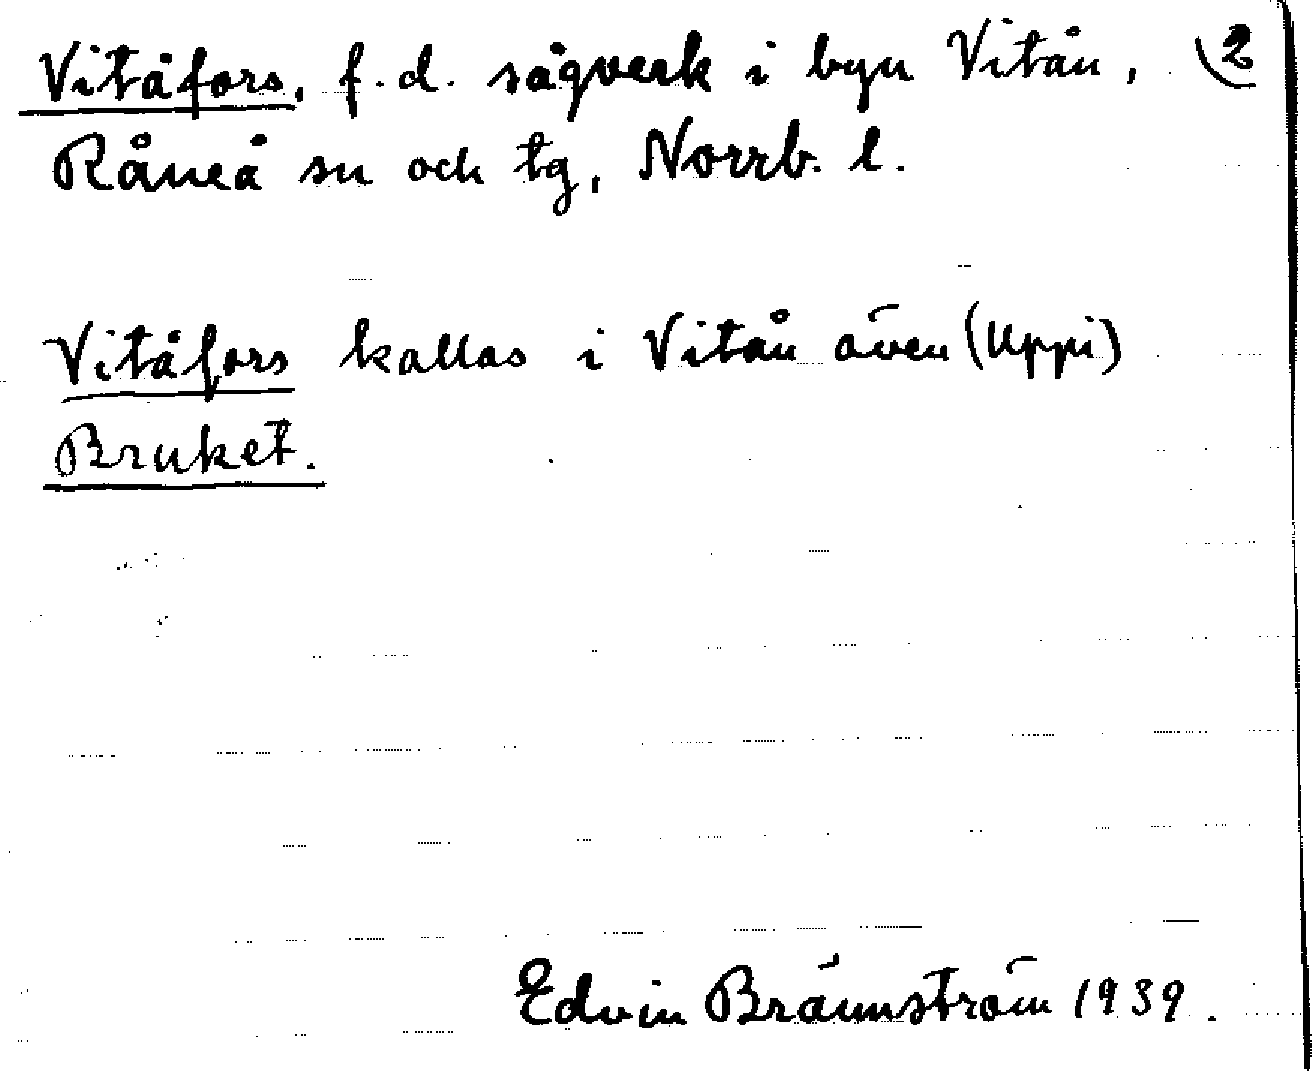 Vitåfors, f.d. sågverk i byn Vitån, 2
Råneå sn och tg, Norrb. l.
Vitåfors kallas i Vitån även (Uppi)
Bruket.
Edvin Brännström 1939.